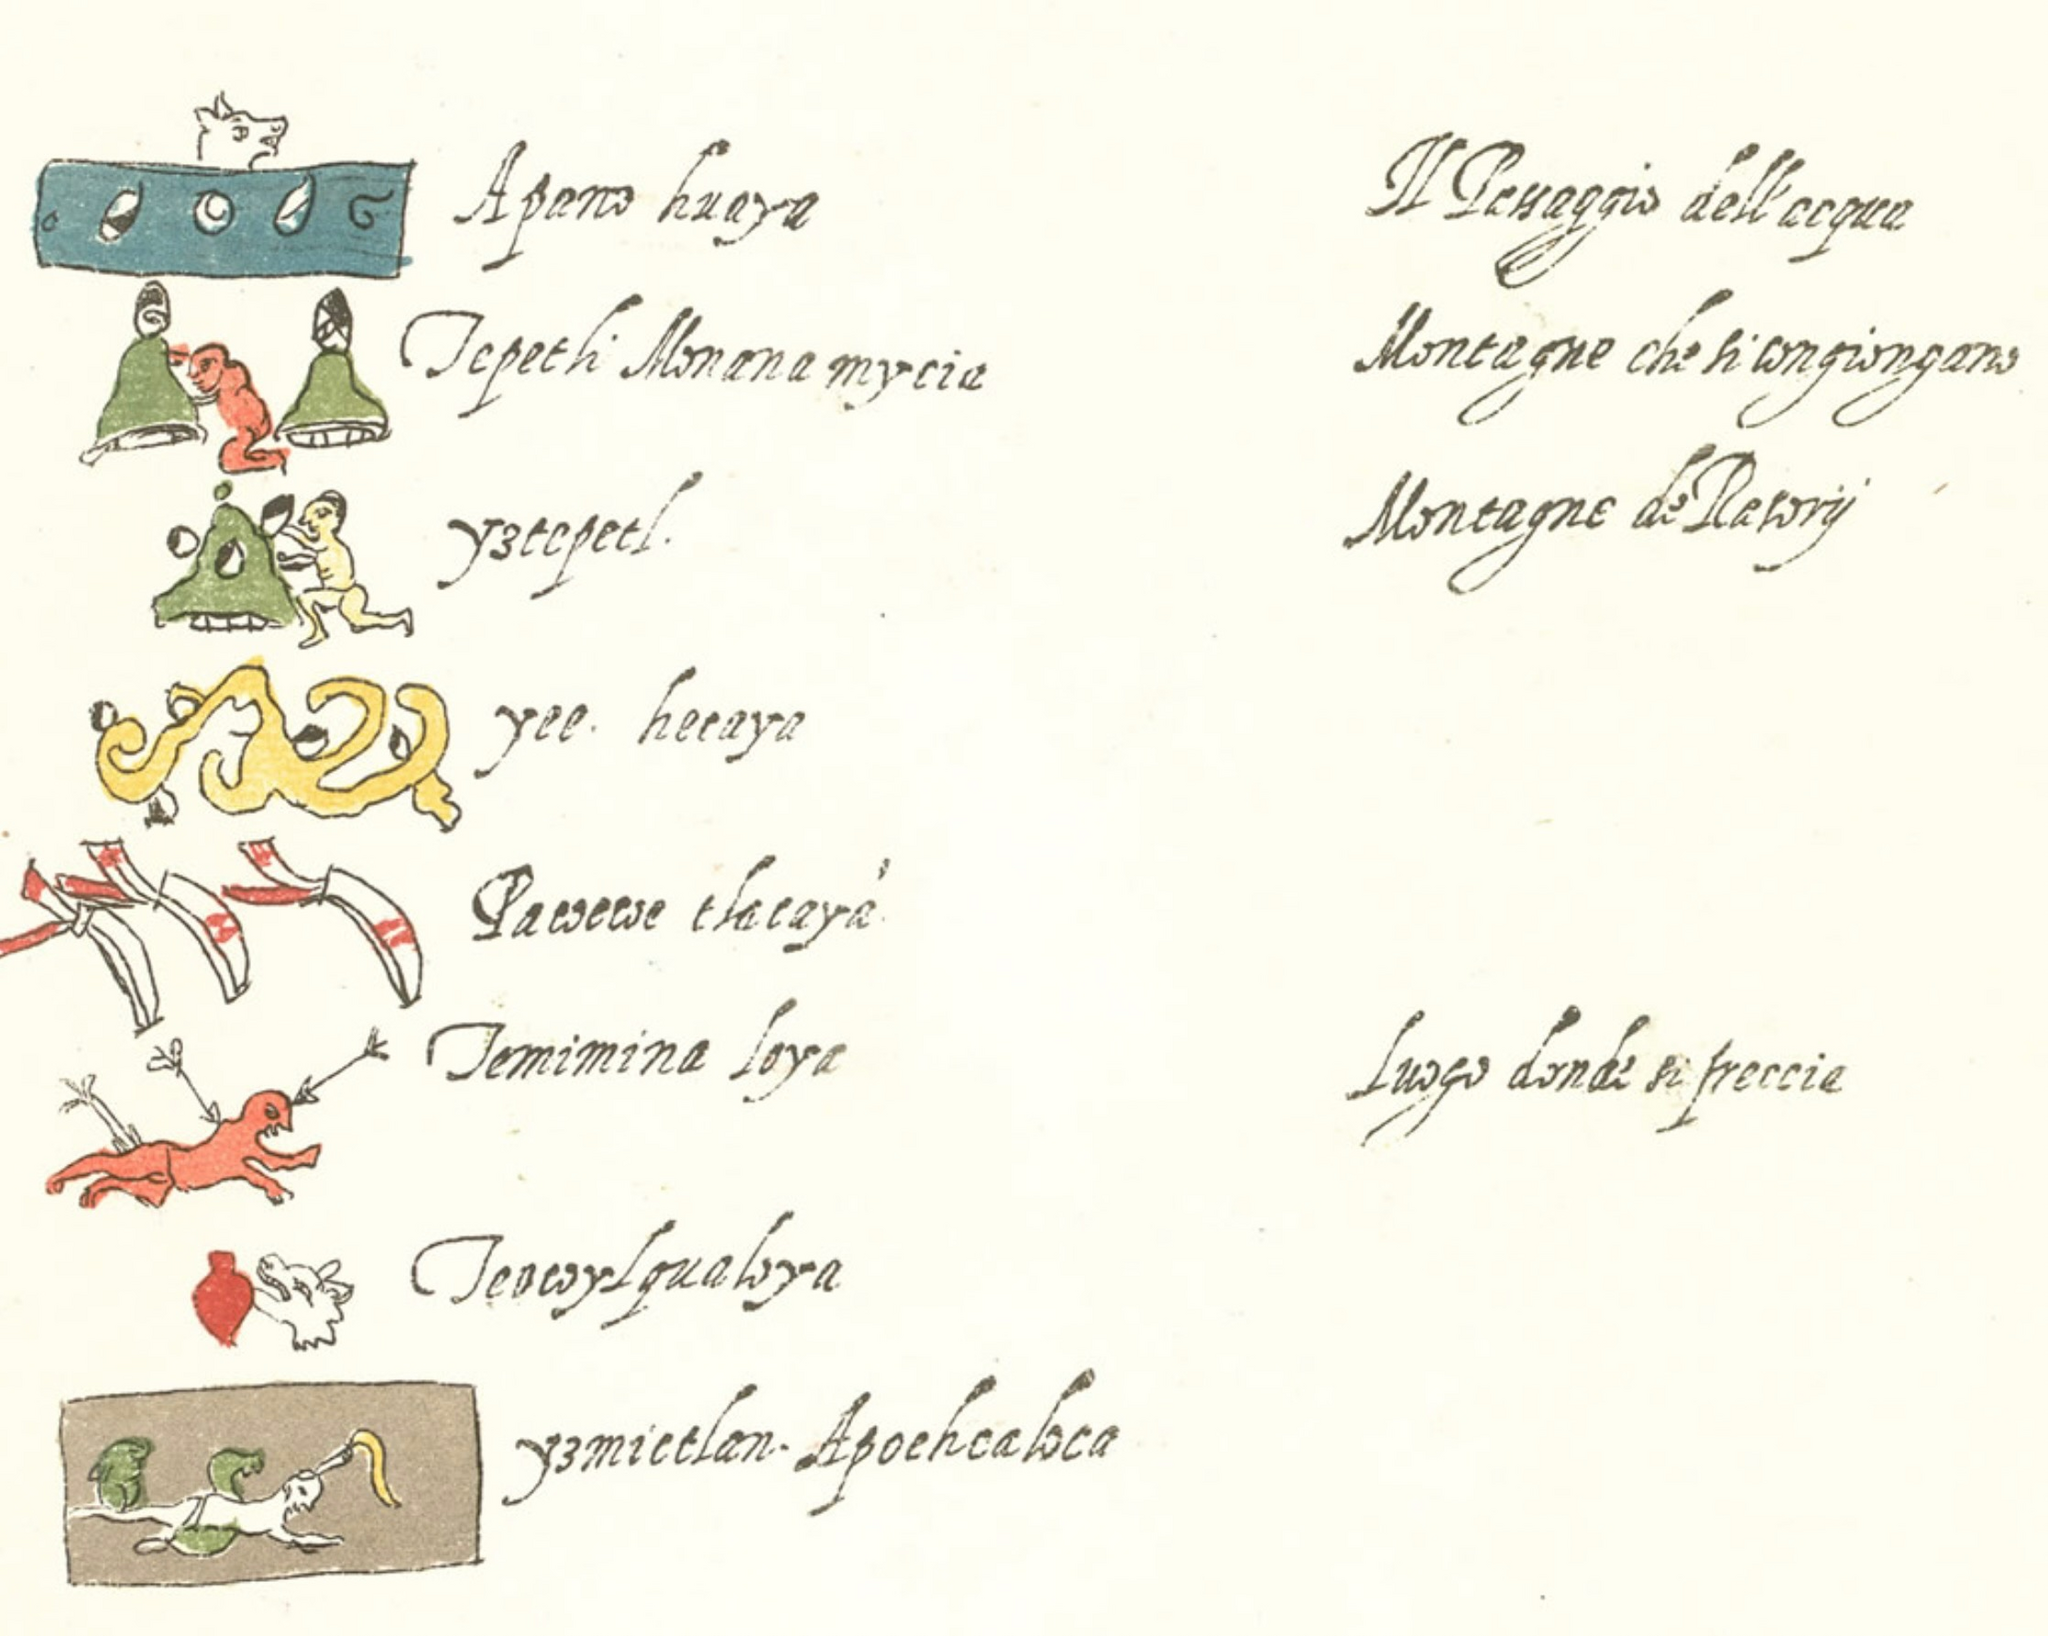 Apano huaya Il Passaggio dell'acqua
Tepetli Monana mycia Montagne che si congiongano
yztepetl. Montagne de Rasorij
yee. hecaya
Pacoecoe tlacaya
Temimina loya Luogo donde si freccia
Teocoylqualoya
yzmictlan. Apochcaloca